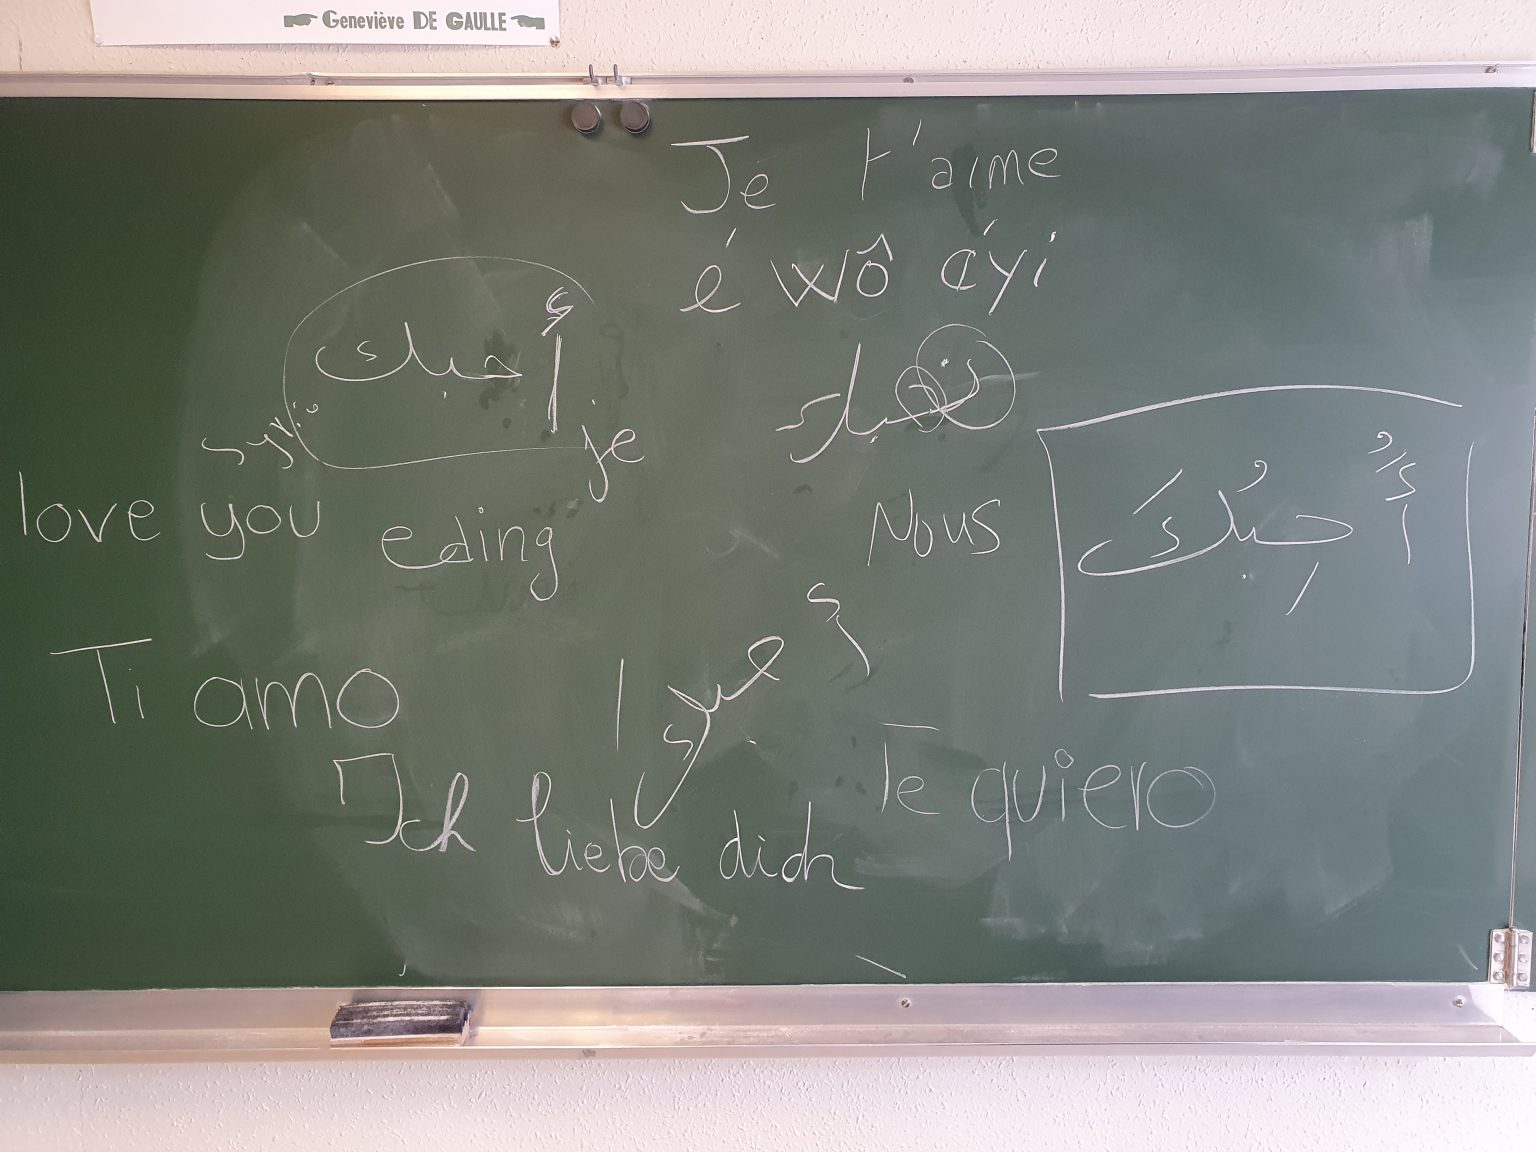 Geneviève DE GAULLE
Je t'aime
é wô áyí
أحبك
syri
je
نحبك
love you
eding
Nous
أُحِبُكَ
أحبك
Ti amo
Te quiero
Ich liebe dich